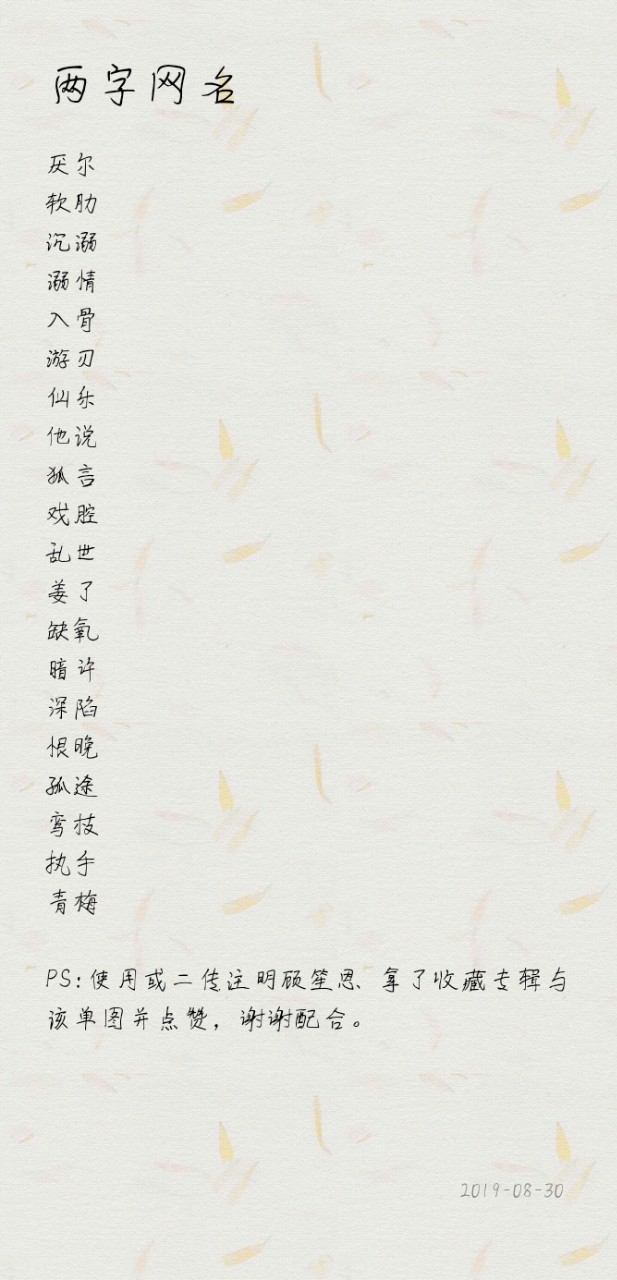 两字网名
厌尔
软肋
沉溺
溺情
入骨
游刃
仙乐
他说
狐言
戏腔
乱世
姜了
缺氧
暗许
深陷
恨晚
孤途
鸾枝
执手
青梅
PS:使用或二传注明顾笙恩、拿了收藏专辑与
该单图并点赞，谢谢配合。
2019-08-30